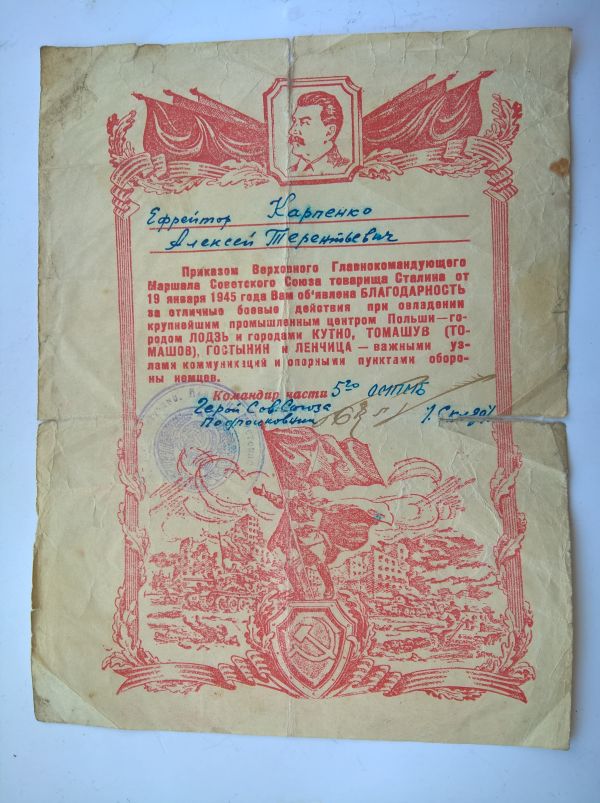 Ефрейтор Карпенко
Алексей Терентьевич
Приказом Верховного Главнокомандующего
Маршала Советского Союза товарища Сталина от
19 января 1945 года Вам об'явлена БЛАГОДАРНОСТЬ
за отличные боевые действия при овладении
крупнейшим промышленным центром Польши—го-
родом ЛОДЗЬ и городами КУТНО, ТОМАШУВ (ТО-
МАШОВ), ГОСТЫНИН и ЛЕНЧИЦА — важными уз-
лами коммуникаций и опорными пунктами оборо-
ны немцев.
Командир части 5го
Герой Сов. Союза
Подполковник